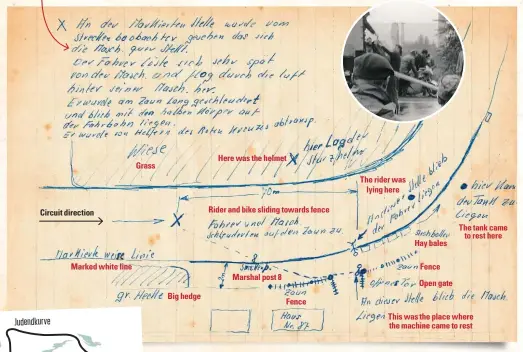 X An der Markierten Stelle wurde vom
Strecken beobachter gesehen das sich
die Masch. quer Stellt.
Der Fahrer löste sich sehr spät
von der Masch. und flog durch die luft
hinter seiner Masch. her.
Er wurde am Zaun lang geschleudert
und blieb mit den halben Körper auf
der Fahrbahn liegen.
Er wurde von Helfern des Roten Kreuzes abtransp.
Wiese
Grass
Here was the helmet
X
hier Lag der
Sturzhelm
70m
The rider was
lying here
An dieser Stelle blieb
der Fahrer liegen
hier kam
der Tank zu
Liegen
The tank came
to rest here
Circuit direction
X
Rider and bike sliding towards fence
Fahrer und Masch.
Schleuderten auf den Zaun zu.
Hay bales
Markierte weise Linie
Marked white line
8
Marshal post 8
Zaun
Fence
offenes Tor
Open gate
gr. Hecke
Big hedge
Zaun
Fence
Haus
Nr. 87
An dieser Stelle blieb die Masch.
Liegen
This was the place where
the machine came to rest
Judendkurve